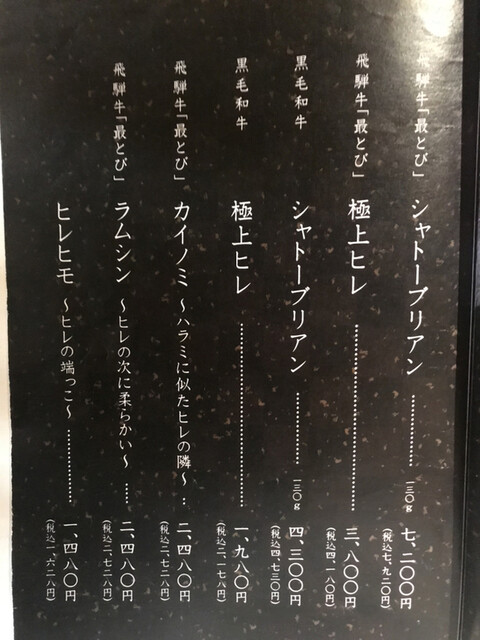 飛騨牛「最とび」 シャトーブリアン ………… 一三〇g 七、二〇〇円
(税込七、九二〇円)
飛騨牛「最とび」 極上ヒレ ………… 三、八〇〇円
(税込四、一八〇円)
黒毛和牛 シャトーブリアン ………… 一三〇g 四、三〇〇円
(税込四、七三〇円)
黒毛和牛 極上ヒレ ………… 一、九八〇円
(税込二、一七八円)
飛騨牛「最とび」 カイノミ 〜ハラミに似たヒレの隣〜 … 二、四八〇円
(税込二、七二八円)
飛騨牛「最とび」 ラムシン 〜ヒレの次に柔らかい〜 …… 二、四八〇円
(税込二、七二八円)
ヒレヒモ 〜ヒレの端っこ〜 ………… 一、四八〇円
(税込一、六二八円)